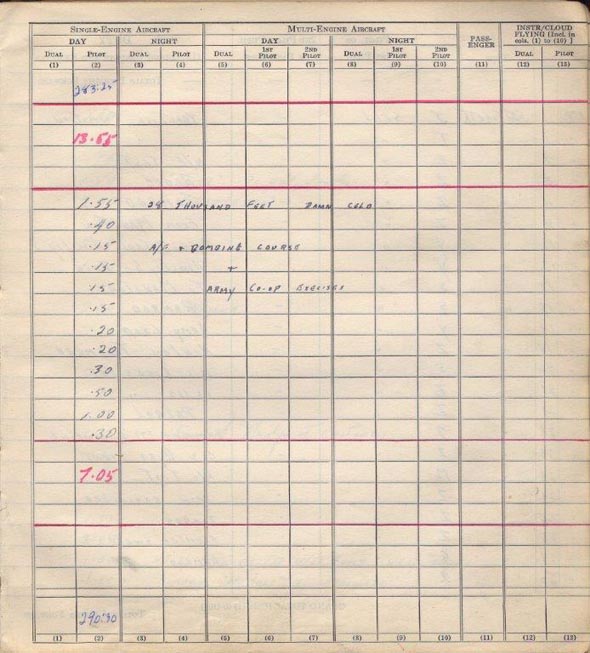 SINGLE-ENGINE AIRCRAFT MULTI-ENGINE AIRCRAFT PASS-ENGER INSTR/CLOUD FLYING [Incl. in cols. (1) to (10) ]
DAY NIGHT DAY NIGHT
DUAL PILOT DUAL PILOT DUAL 1ST PILOT 2ND PILOT DUAL 1ST PILOT 2ND PILOT DUAL PILOT
(1) (2) (3) (4) (5) (6) (7) (8) (9) (10) (11) (12) (13)
283:25
13.55
1.55 28 THOUSAND FEET DAMN COLD
.40
.15 A/G + BOMBING COURSE
.15 +
.15 ARMY CO-OP EXCISES
.15
.20
.20
.30
.50
1.00
.30
7.05
290:30
(1) (2) (3) (4) (5) (6) (7) (8) (9) (10) (11) (12) (13)